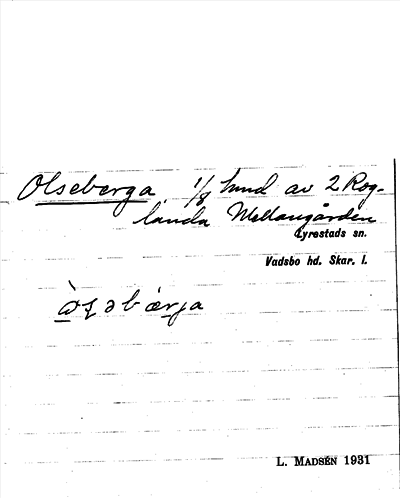 Olseberga, 1/8 hmd av 2 Rog-
landa Mellangården
Lyrestads sn.
Vadsbo hd. Skar. l.
L. MADSÉN 1931